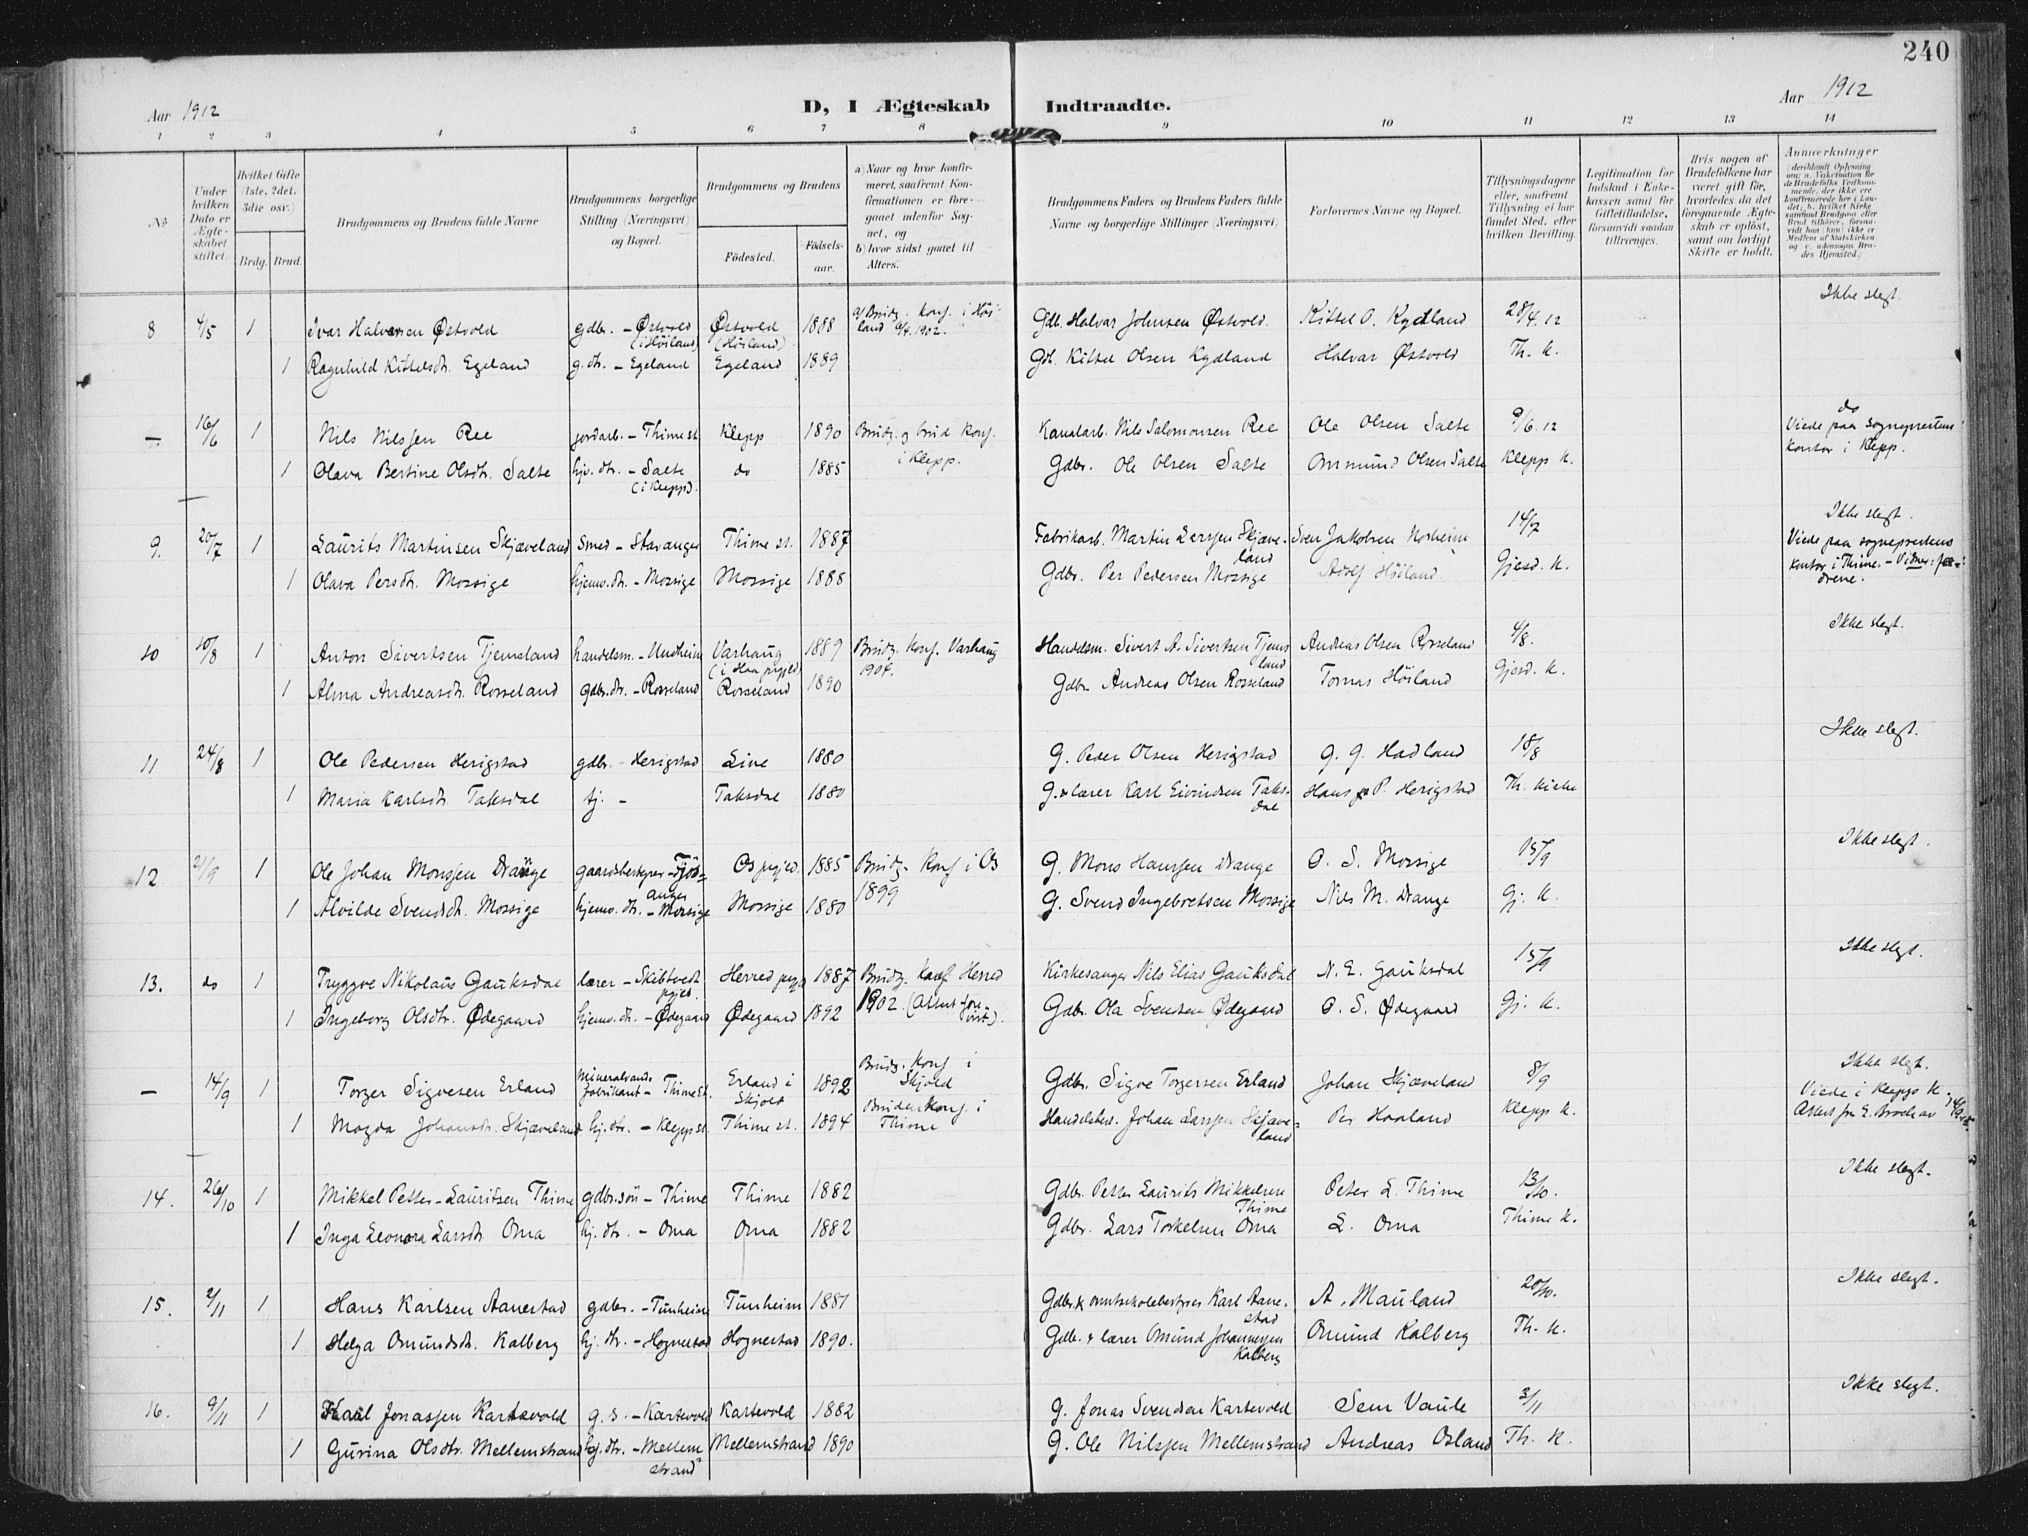 240
Aar 1912
D, I Ægteskab Indtraadte.
Aar 1912
1 2 3 4 5 6 7 8 9 10 11 12 13 14
No.
Under hvilken Dato er Ægteskabet stiftet.
Hvilket Gifte (1ste, 2det, 3die osv.)
Brdg. Brud.
Brudgommens og Brudens fulde Navne
Brudgommens borgerlige Stilling (Næringsvei) og Bopæl.
Brudgommens og Brudens
Fødested.
Fødselsaar.
a) Naar og hvor konfirmeret, saafremt Konfirmationen er foregaaet udenfor Sognet, og
b) hvor sidst gaaet til Alters.
Brudgommens Faders og Brudens Faders fulde Navne og borgerlige Stillinger (Næringsvei).
Forlovernes Navne og Bopæl.
Tillysningsdagene eller, saafremt Tillysning ei har fundet Sted, efter hvilken Bevilling.
Legitimation for Indskud i Enkekassen samt for Giftetilladelse, forsaavidt saadan tiltrænges.
Hvis nogen af Brudefolkene har været gift før, hvorledes da det foregaaende Ægteskab er opløst, samt om lovligt Skifte er holdt.
Anmærkninger
8 4/5 1 Ivar Halvorsen Østvold gdbr. - Østvold (i Høiland) Østvold (Høiland) 1888 a) Brudg. konf. i Høiland 6/4 1902. Gdb. Halvar Johnsen Østvold. Kittel O. Kydland 28/4.12 Ikke slegt.
1 Ragnhild Kittelsdtr. Egeland g.dtr. - Egeland Egeland 1889 Gdb. Kittel Olsen Kydland Halvar Østvold Th. K.
— 16/6 1 Nils Nilssen Ree jordarb. - Thime st. Klepp 1890 Brudg. og brud konf. i Klepp. Kanalarb. Nils Salomonsen Ree Ole Olsen Salte 9/6.12 do Viede paa sogneprestens kontor i Klepp.
1 Olava Bertine Olsdtr. Salte hjv. dtr. - Salte (i Klepp). do 1885 Gdbr. Ole Olsen Salte Ommund Olsen Salte Klepp K.
9. 20/7 1 Laurits Martinsen Skjæveland Smed - Stavanger Thime st. 1887 Fabrikarb. Martin Larssen Skjæveland Sven Jakobsen Norheim 14/7 Ikke slegt. Viede paa sogneprestens kontor i Thime. - Vidner: fædrene.
1 Olava Persdtr. Mossige hjemv. dtr. - Mossige Mossige 1888 Gdbr. Per Pedersen Mossige Adolf Høiland Gjesd. K.
10 10/8 1 Anton Sivertsen Tjemsland handelsm. - Undheim Varhaug (i Haa prgjeld) 1889 Brudg. konf. Varhaug 1904. Handelsm. Sivert A. Sivertsen Tjemsland Andreas Olsen Rosseland 4/8. Ikke slegt.
1 Alma Andreasdtr. Rosseland gdbr. dtr. - Rosseland Rosseland 1890 Gdbr. Andreas Olsen Rosseland Tomas Høiland Gjesd. K.
11 24/8 1 Ole Pedersen Herigstad gdbr. - Herigstad Line 1880 G. Peder Olsen Herigstad G. G. Hadland 18/8 Ikke slegt.
1 Maria Karlsdtr. Taksdal tj. - Taksdal 1880 G. & lærer Karl Eivindsen Taksdal Hans P. Herigstad Th. Kirke
12. 21/9 1 Ole Johan Monsen Drange gaardsbestyrer - Fjøsanger Os prgjed. 1885 Brudg. konf i Os 1899 G. Mons Hanssen Drange O. S. Mossige 15/9 Ikke slegt.
1 Alvilde Svendsdtr. Mossige hjemv. dtr. - Mossige Mossige 1880 G. Svend Ingebretsen Mossige Nils M. Drange Gj. K.
13. do 1 Tryggve Nikolaus Gauksdal lærer - Skibtvedt prgjed. Herred prgj. 1887 Brudg. konf Herred 1902. (Attest forevist). Kirkesanger Nils Elias Gauksdal N. E. Gauksdal 15/9 Ikke slegt.
1 Ingeborg Olsdtr. Ødegaard hjemv. dtr. - Ødegaard Ødegaard 1892 Gdbr. Ola Svendsen Ødegaard O. S. Ødegaard Gj. K.
— 14/9 1 Torger Sigvesen Erland Mineralvandsfabrikant - Thime St. Erland i Skjold 1892 Brudg. konf i Skjold Gdbr. Sigve Torgersen Erland Johan Skjæveland 8/9 Ikke slegt. Viede i Klepps K. Attest fra E. Broch av
1 Magda Johansdtr. Skjæveland hj. dtr. - Klepp st. Thime st. 1894 Bruden konf. i Thime Handelsbest. Johan Larssen Skjæveland Per Haaland Klepp K.
14. 26/10 1 Mikkel Petter-Lauritsen Thime gdbr. søn - Thime Thime 1882 Gdbr. Petter Laurits Mikkelsen Thime Peter L. Thime 13/10. Ikke slegt.
1 Inga Leonora Larsdtr. Oma hj. dtr. - Oma Oma 1882 Gdbr. Lars Torkelsen Oma L. Oma Thime K.
15. 2/11 1 Hans Karlsen Aanestad gdbr. - Tunheim Tunheim 1881 Gdbr. & amtskolebestyrer Karl Aanestad A. Mauland 20/10. Ikke slegt.
1 Helga Omundsdtr. Kalberg hj. dtr. - Hognestad Hognestad 1890. Gdb. & lærer Omund Johannessen Kalberg Omund Kalberg Th. K.
16. 9/11 1 Karl Jonassen Kartevold g. s. - Kartevold Kartevold 1882 G. Jonas Svendsen Kartevold Sem Vaule 3/11 Ikke slegt.
1 Gurina Olsdtr. Mellemstrand hj. dtr. - Mellemstrand Mellemstrand 1890 G. Ole Nilssen Mellemstrand Andreas Osland Th. K.